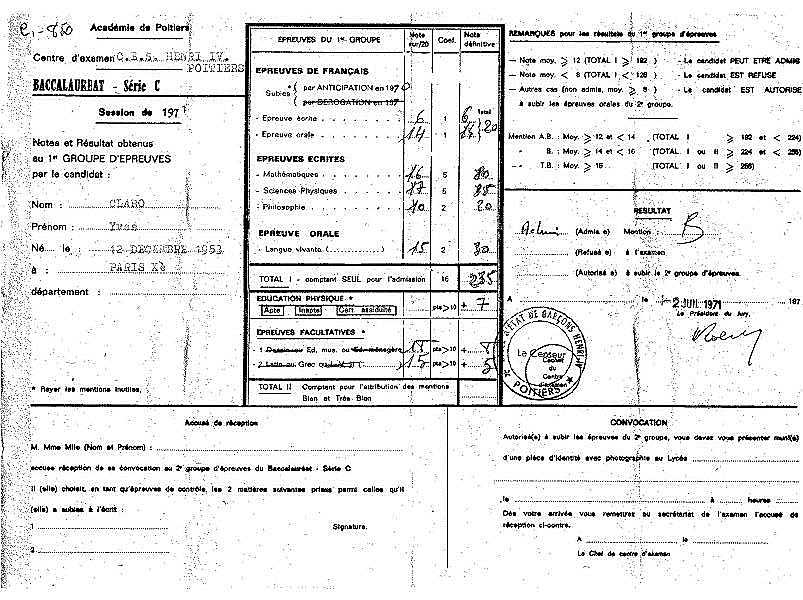 Académie de Poitiers
Centre d'examen C.E.S. HENRI IV.
POITIERS
BACCALAUREAT - Série C
Session de 1971
Notes et Résultat obtenus
au 1er GROUPE D'EPREUVES
par le candidat :
Nom : CLARO
Prénom : Yves
Né le : 12 DECEMBRE 1953
à : PARIS
département :
* Rayer les mentions inutiles.
EPREUVES DU 1er GROUPE
Note sur/20
Coef.
Note définitive
EPREUVES DE FRANÇAIS
Subies * ( par ANTICIPATION en 1970
( par DEROGATION en 197
- Epreuve écrite 6 1 6 total
- Epreuve orale 14 1 14 } 20
EPREUVES ECRITES
- Mathématiques 16 5 80
- Sciences Physiques 17 5 85
- Philosophie 10 2 20
EPREUVE ORALE
- Langue vivante (............) 15 2 30
TOTAL I - comptant SEUL pour l'admission 16 235
EDUCATION PHYSIQUE *
Apte Inapte Cert. assiduité pts>10 + 7
EPREUVES FACULTATIVES *
- 1 Dessin ou Ed. mus. ou Ed. ménagère 18 pts>10 + 8
- 2 Latin ou Grec ou L.V. ( 15 pts>10 + 5
TOTAL II Comptant pour l'attribution des mentions
Bien et Très Bien
REMARQUES pour les résultats du 1er groupe d'épreuves
- Note moy. ⩾ 12 (TOTAL I ⩾ 192) - Le candidat PEUT ETRE ADMIS
- Note moy. < 8 (TOTAL I < 128) - Le candidat EST REFUSE
- Autres cas (non admis, moy. ⩾ 8) - Le candidat EST AUTORISE
à subir les épreuves orales du 2e groupe.
Mention A.B. : Moy. ⩾ 12 et < 14 (TOTAL I ⩾ 192 et < 224)
-"- B. : Moy. ⩾ 14 et < 16 (TOTAL I ou II ⩾ 224 et < 256)
-"- T.B. : Moy. ⩾ 16 (TOTAL I ou II ⩾ 256)
RESULTAT
Admis (Admis e) Mention : B
(Refusé e) à l'examen
(Autorisé e) à subir le 2e groupe d'épreuves.
A le 2 JUIL 1971 197
Le Président du Jury,
D'ETAT DE GARÇONS HENRI IV
Le Censeur
Centre
d'Examen
POITIERS
Accusé de réception
M. Mme Mlle (Nom et Prénom) :
accuse réception de sa convocation au 2e groupe d'épreuves du Baccalauréat - Série C
Il (elle) choisit, en tant qu'épreuves de contrôle, les 2 matières suivantes prises parmi celles qu'il
(elle) a subies à l'écrit :
1
2
Signature.
CONVOCATION
Autorisé(e) à subir les épreuves du 2e groupe, vous devez vous présenter muni(e)
d'une pièce d'identité avec photographie au Lycée
le à heures
Dès votre arrivée vous remettrez au secrétariat de l'examen l'accusé de
réception ci-contre.
A le
Le Chef de centre d'examen